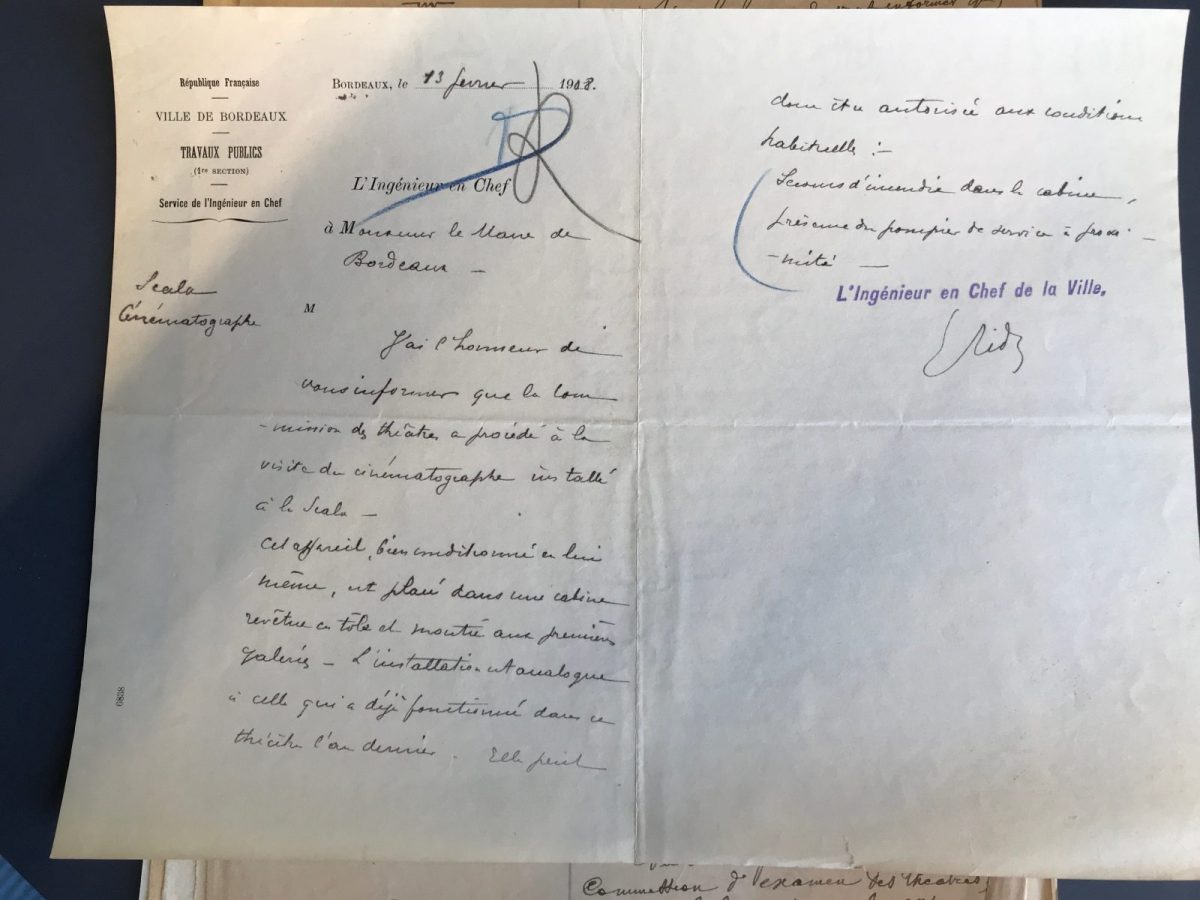 République Française
VILLE DE BORDEAUX
TRAVAUX PUBLICS
(1re SECTION)
Service de l'Ingénieur en Chef
Scala
Cinématographe
0838
BORDEAUX, le 13 fevrier 1908.
L'Ingénieur en Chef
à Monsieur le Maire de
Bordeaux —
M
J'ai l'honneur de
vous informer que la Com
-mission des théâtres a procédé à la
visite du cinématographe installé
à la Scala —
Cet appareil, bien conditionné en lui
même, est placé dans une cabine
revêtue en tôle et montée aux premières
galeries — L'installation est analogue
à celle qui a déjà fonctionné dans ce
théâtre l'an dernier. Elle peut
donc être autorisée aux conditions
habituelles :—
Secours d'incendie dans la cabine,
présence du pompier de service à proxi-
-mité —
L'Ingénieur en Chef de la Ville,
Commission d'examen des théâtres,